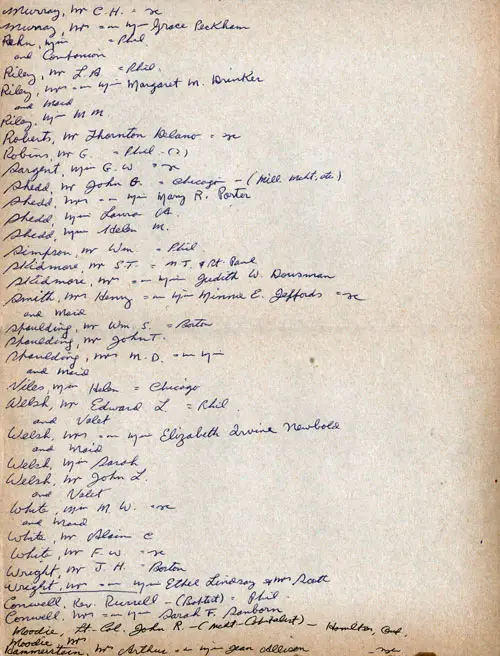 Murray, Mr C.H. = x
Murray, Mrs = — Mis— Grace Peckham
Rehn, Miss = Phil.
and Companion
Riley, Mr L.A. = Phil.
Riley, Mrs = — Mis— Margaret M. Drinker
and Maid
Riley, Mis— M M.
Roberts, Mr Thornton Delano = x
Robins, Mr G. = Phil (?)
Sargent, Mis— G. W. = x
Shedd, Mr John G. = Chicago - (Mill. Mcht, etc)
Shedd, Mrs = — Mis— Mary R. Porter
Shedd, Mis— Laura A.
Shedd, Mis— Helen M.
Simpson, Mr Wm = Phil
Skidmore, Mr S.T. = N J. & St. Paul
Skidmore, Mrs = — Mis— Judith W. Dousman
Smith, Mrs Henry = — Mis— Minnie E. Jeffords = x
and Maid
Spaulding, Mr Wm S. = Boston
Spaulding, Mr John T.
Spaulding, Mrs M.D. = — Mis—
and Maid
Viles, Mis— Helen = Chicago
Welsh, Mr Edward L. = Phil.
and Valet
Welsh, Mrs = — Mis— Elizabeth Irvine Newbold
and Maid
Welsh, Mis— Sarah
Welsh, Mr John L.
and Valet
White, Mis— M. W. = x
and Maid
White, Mr Alain C
White, Mr F. W. = x
Wright, Mr J. H. = Boston
Wright, Mrs = — Mis— Ethel Lindsay & Mrs Scott
Conwell, Rev. Russell - (Baptist) = Phil.
Conwell, Mrs = — Mis— Sarah F. Sanborn
Moodie, Lt Col. John R - (Mcht-Capitalist) - Hamilton, Ont.
Moodie, Mrs
Hammerstein, Mr Arthur = — Mis— Jean Allison = x